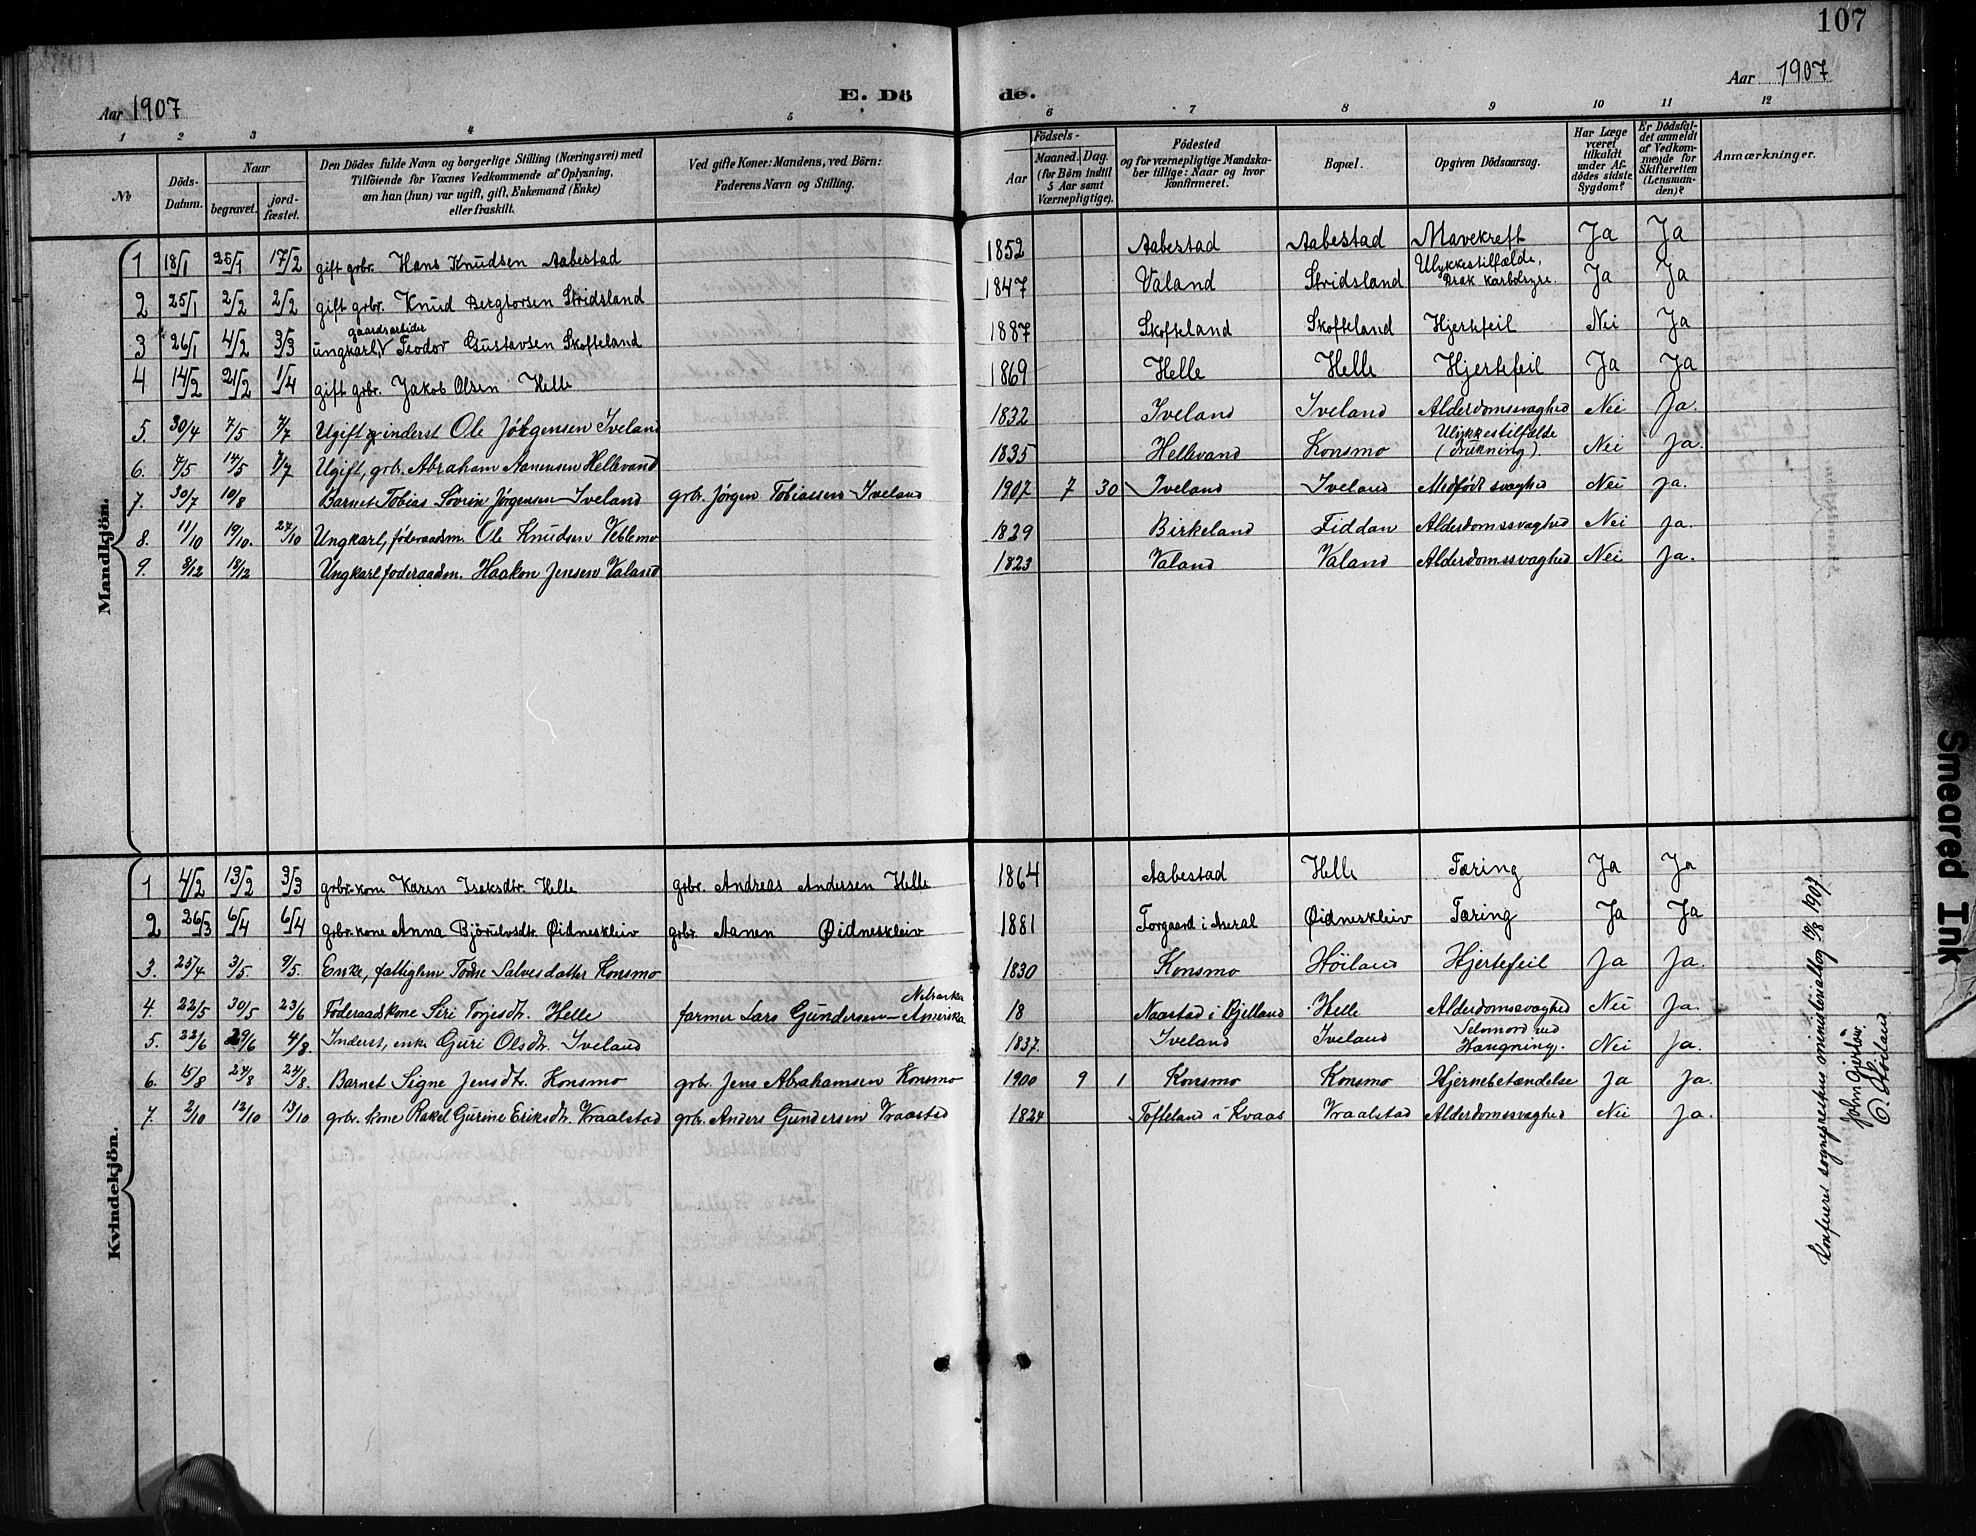 107
Aar 1907
E. Dö
de.
Aar 1907
1 2 3 4 5 6 7 8 9 10 11 12
No
Döds-Datum.
Naar
begravet.
jord-fæstet.
Den Dödes fulde Navn og borgerlige Stilling (Næringsvei) med
Tilföiende for Voxnes Vedkommende af Oplysning,
om han (hun) var ugift, gift, Enkemand (Enke)
eller fraskilt.
Ved gifte Koner: Mandens, ved Börn:
Faderens Navn og Stilling.
Födsels-
Aar
Maaned. Dag.
(for Börn indtil
5 Aar samt
Værnepligtige).
Födested
og for værnepligtige Mandska-
ber tillige: Naar og hvor
konfirmeret.
Bopæl.
Opgiven Dödsaarsag.
Har Læge
været
tilkaldt
under Af-
dödes sidste
Sygdom?
Er Dödsfal-
det anmeldt
af Vedkom-
mende for
Skifteretten
(Lensman-
den)?
Anmærkninger.
Mandkjön.
1 18/1 25/1 17/2 gift grbr. Hans Knudsen Aabestad 1852 Aabestad Aabestad Mavekreft Ja Ja
2 25/1 2/2 2/2 gift grbr. Knud Bergtorsen Stridsland 1847 Valand Stridsland Ulykkestilfælde, Drak karbolsyre. Ja Ja
3 26/1 4/2 3/3 ungkarl, gaardsarbider Teodor Gustavsen Skofteland 1887 Skofteland Skofteland Hjertefeil Nei Ja
4 14/2 21/2 1/4 gift grbr. Jakob Olsen Helle 1869 Helle Helle Hjertefeil Ja Ja
5. 30/4 7/5 7/7 Ugift inderst Ole Jørgensen Iveland 1832 Iveland Iveland Alderdomssvaghed Nei Ja.
6. 7/5 14/5 7/7 Ugift, grbr. Abraham Aanensen Hellevand 1835 Hellevand Konsmo Ulykkestilfælde (Drukning). Nei Ja.
7. 30/7 10/8 Barnet Tobias Søvrin Jørgensen Iveland grbr. Jørgen Tobiassen Iveland 1907 7 30 Iveland Iveland Medfødt svaghed Nei Ja.
8. 11/10 19/10. 27/10 Ungkarl, føderaadsm. Ole Knudsen Veblemo 1829 Birkeland Fiddan Alderdomssvaghed Nei Ja.
9. 8/12 18/12 Ungkarl foderaadm. Haakon Jensen Valand 1823 Valand Valand Alderdomssvaghed Nei Ja.
Kvindekjön.
1 4/2 13/2 3/3 grbr. kone Karen Isaksdtr. Helle grbr. Andreas Andersen Helle 1864 Aabestad Helle Tæring Ja Ja
2 26/3 6/4 6/4 grbr. kone Anna Bjørulvsdtr. Øidneskleiv grbr. Aanen Øidneskleiv 1881 Torgaard i Aseral Øidneskleiv Tæring Ja Ja
3. 25/4 3/5. 9/5. Enke, fattiglem Todne Salvesdatter Konsmo 1830 Konsmo Höiland Hjertefeil Ja Ja.
4. 22/5 30/5 23/6 Föderaadskone Siri Torjesdtr. Helle farmer Lars Gundersen – Nebraska Amerika 18 Naastad i Bjelland Helle Alderdomssvaghed Nei Ja.
5. 22/6 29/6 4/8. Inderst, enke Guri Olsdtr. Iveland 1837. Iveland Iveland Selvmord ved Hængning. Nei Ja.
6. 15/8 24/8 24/8. Barnet Signe Jensdtr. Konsmo grbr. Jens Abrahamsen Konsmo 1900 9 1 Konsmo Konsmo Hjernebetændelse Ja Ja.
7. 2/10 12/10 13/10 grbr. kone Rakel Gurine Eriksdtr. Vraalstad grbr. Anders Gundersen Vraastad 1824 Tofteland i Kvaas Vraalstad Alderdomssvaghed Nei Ja.
Konfereret sognepræstens ministerialbog 1907.
John Gjerløw.
O. Höiland
Smeared Ink